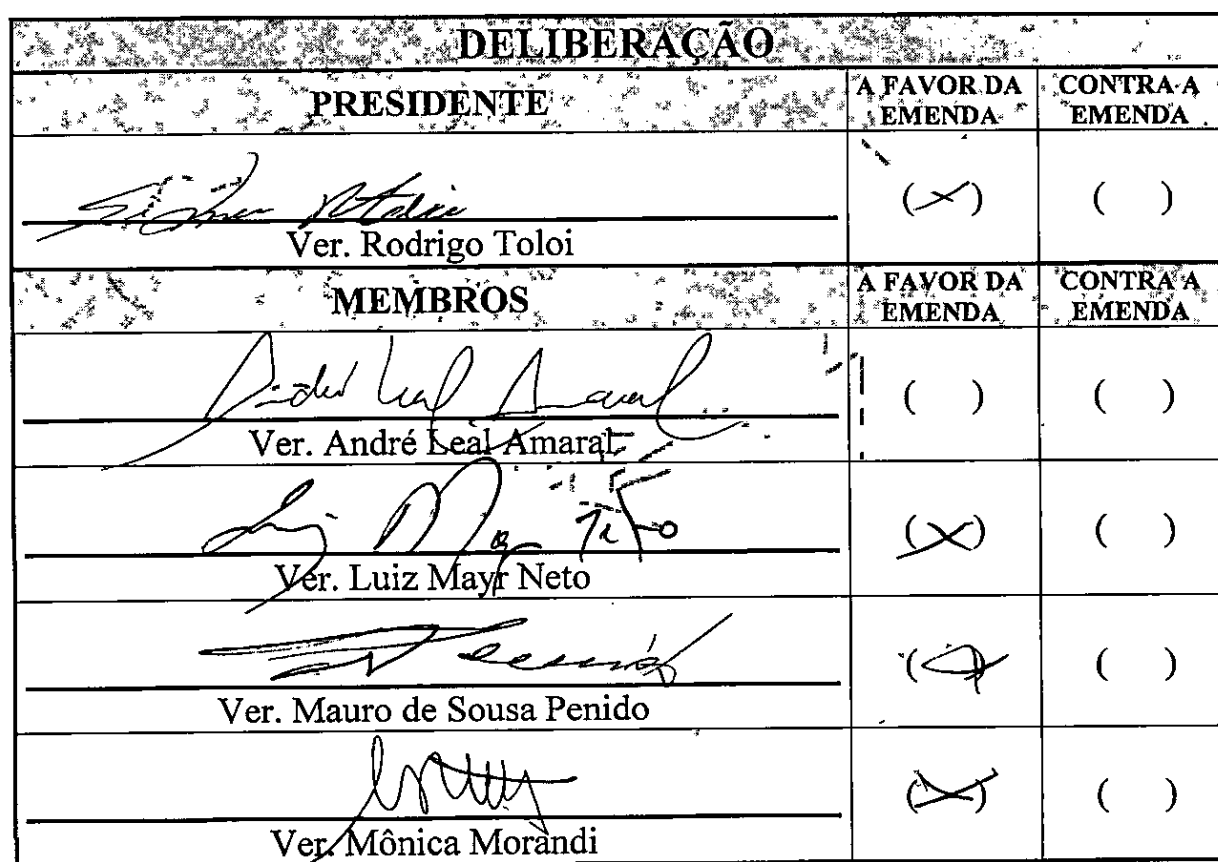 DELIBERAÇÃO
PRESIDENTE A FAVOR DA EMENDA CONTRA A EMENDA
(X) ( )
Ver. Rodrigo Toloi
MEMBROS A FAVOR DA EMENDA CONTRA A EMENDA
André Leal Amaral ( ) ( )
Ver. André Leal Amaral
Luiz Mayr Neto (X) ( )
Ver. Luiz Mayr Neto
( ) ( )
Ver. Mauro de Sousa Penido
(X) ( )
Ver. Mônica Morandi